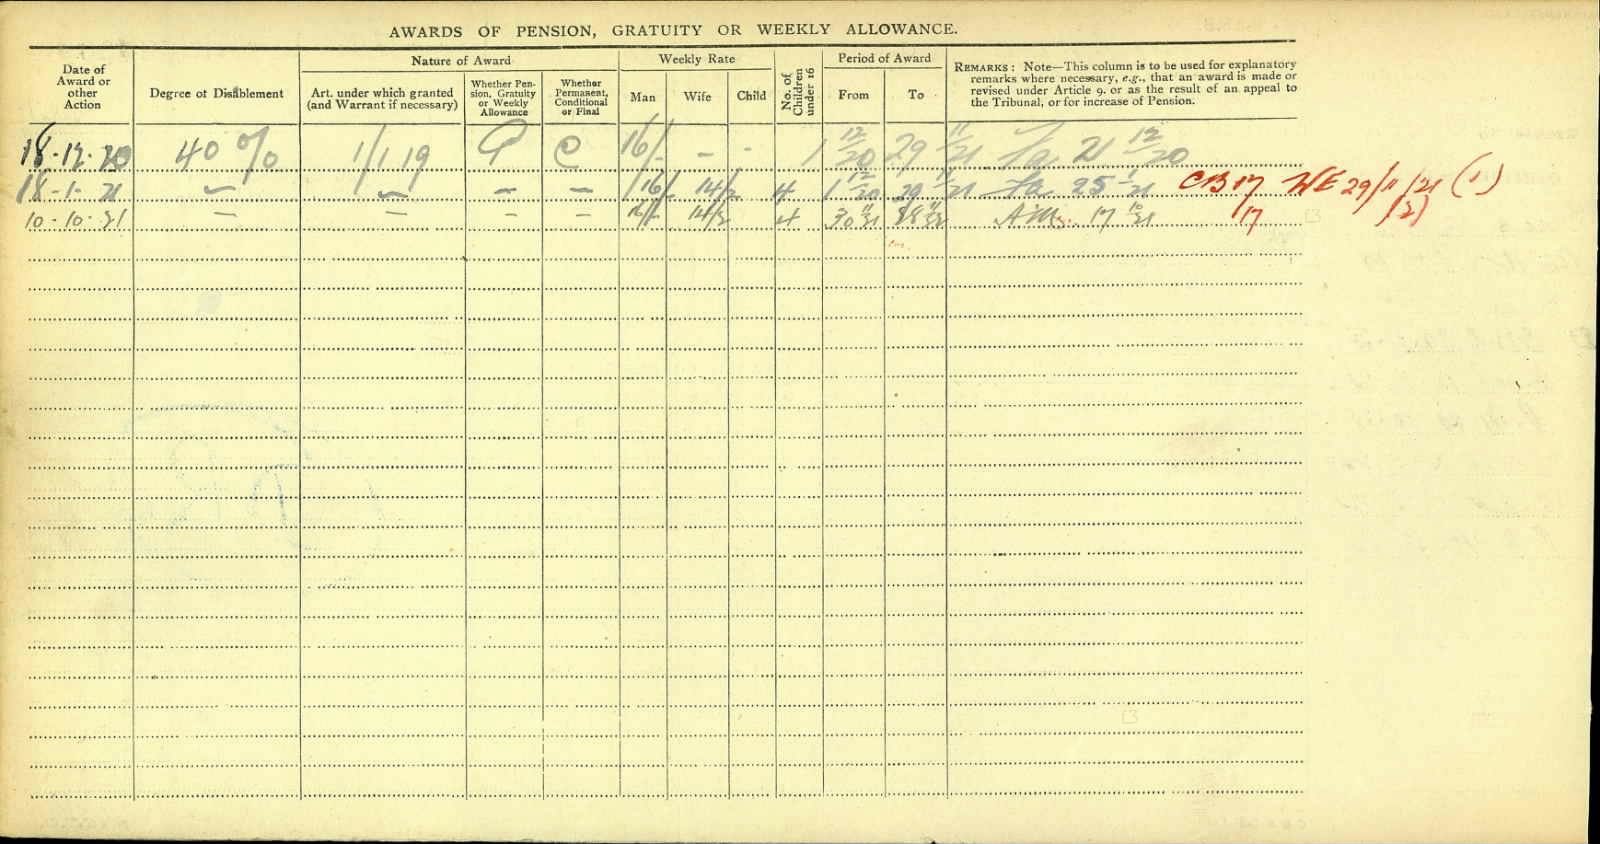 AWARDS OF PENSION, GRATUITY OR WEEKLY ALLOWANCE.
Date of Award or other Action
Degree of Disablement
Nature of Award
Art. under which granted (and Warrant if necessary)
Whether Pension, Gratuity or Weekly Allowance
Whether Permanent, Conditional or Final
Weekly Rate
Man
Wife
Child
No. of Children under 16
Period of Award
From
To
REMARKS: Note—This column is to be used for explanatory
remarks where necessary, e.g., that an award is made or
revised under Article 9. or as the result of an appeal to
the Tribunal, or for increase of Pension.
18-12-20 40 % 1/1 19 P C 16/- - - 1 12/20 29 11/21 21 12/20
18-1-21 — — — — 16/- 14/2 4 1 12/20 29 11/21 25 1/21 CB 17 WE 29/11/21 (1)
10-10-21 — — — — 16/- 14/2 4 30 11/21 17 10/21 17